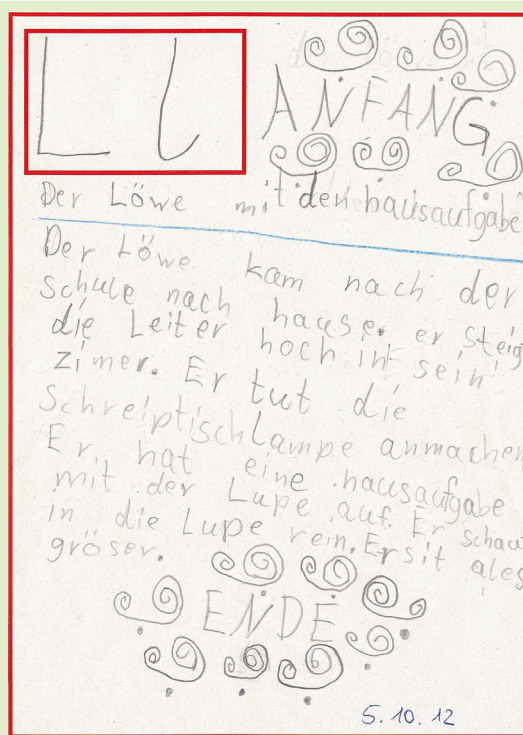 L l
ANFANG
Der Löwe mit den hausaufgabe
Der Löwe kam nach der
Schule nach hause. er steig
die Leiter hoch int sein
zimer. Er tut die
Schreiptischlampe anmachen
Er hat eine hausaufgabe
mit der Lupe auf. Er schau
in die Lupe rein. Er sit ales
gröser.
ENDE
5.10.12